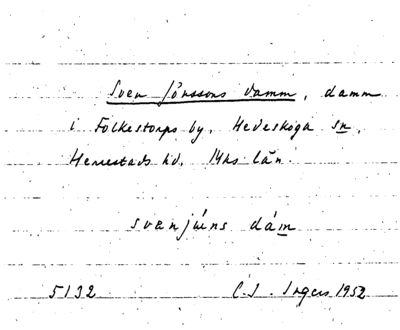 Sven Jönssons damm, damm
i Folkestorps by, Hedeskoga sn,
Herrestads hd. Mhs län.
svanjúens dám
5132 C.I. Ingers 1952